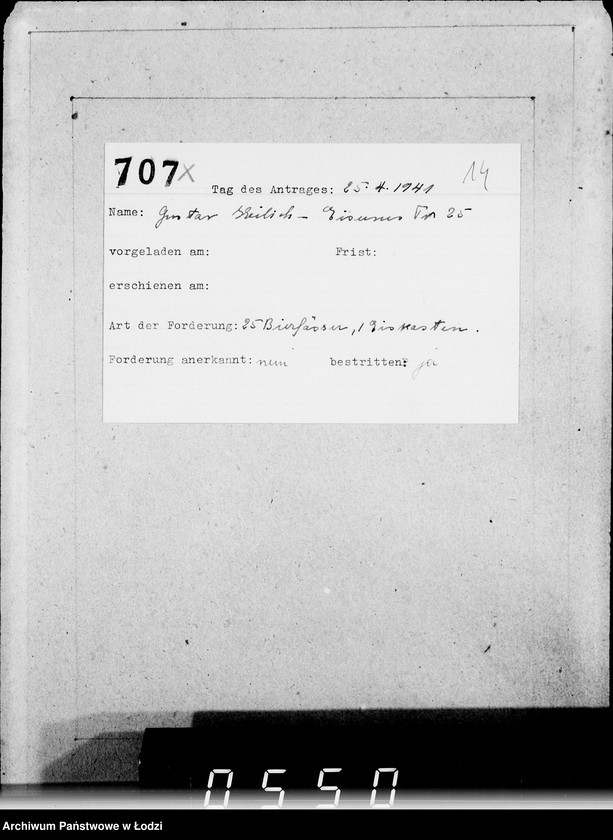 707 X
14
Tag des Antrages: 25. 4. 1941
Name: Gustav
vorgeladen am: Frist:
erschienen am:
Art der Forderung: 25 Bierfässer, 1 Eiskasten.
Forderung anerkannt: nein bestritten: ja
0550
Archiwum Państwowe w Łodzi